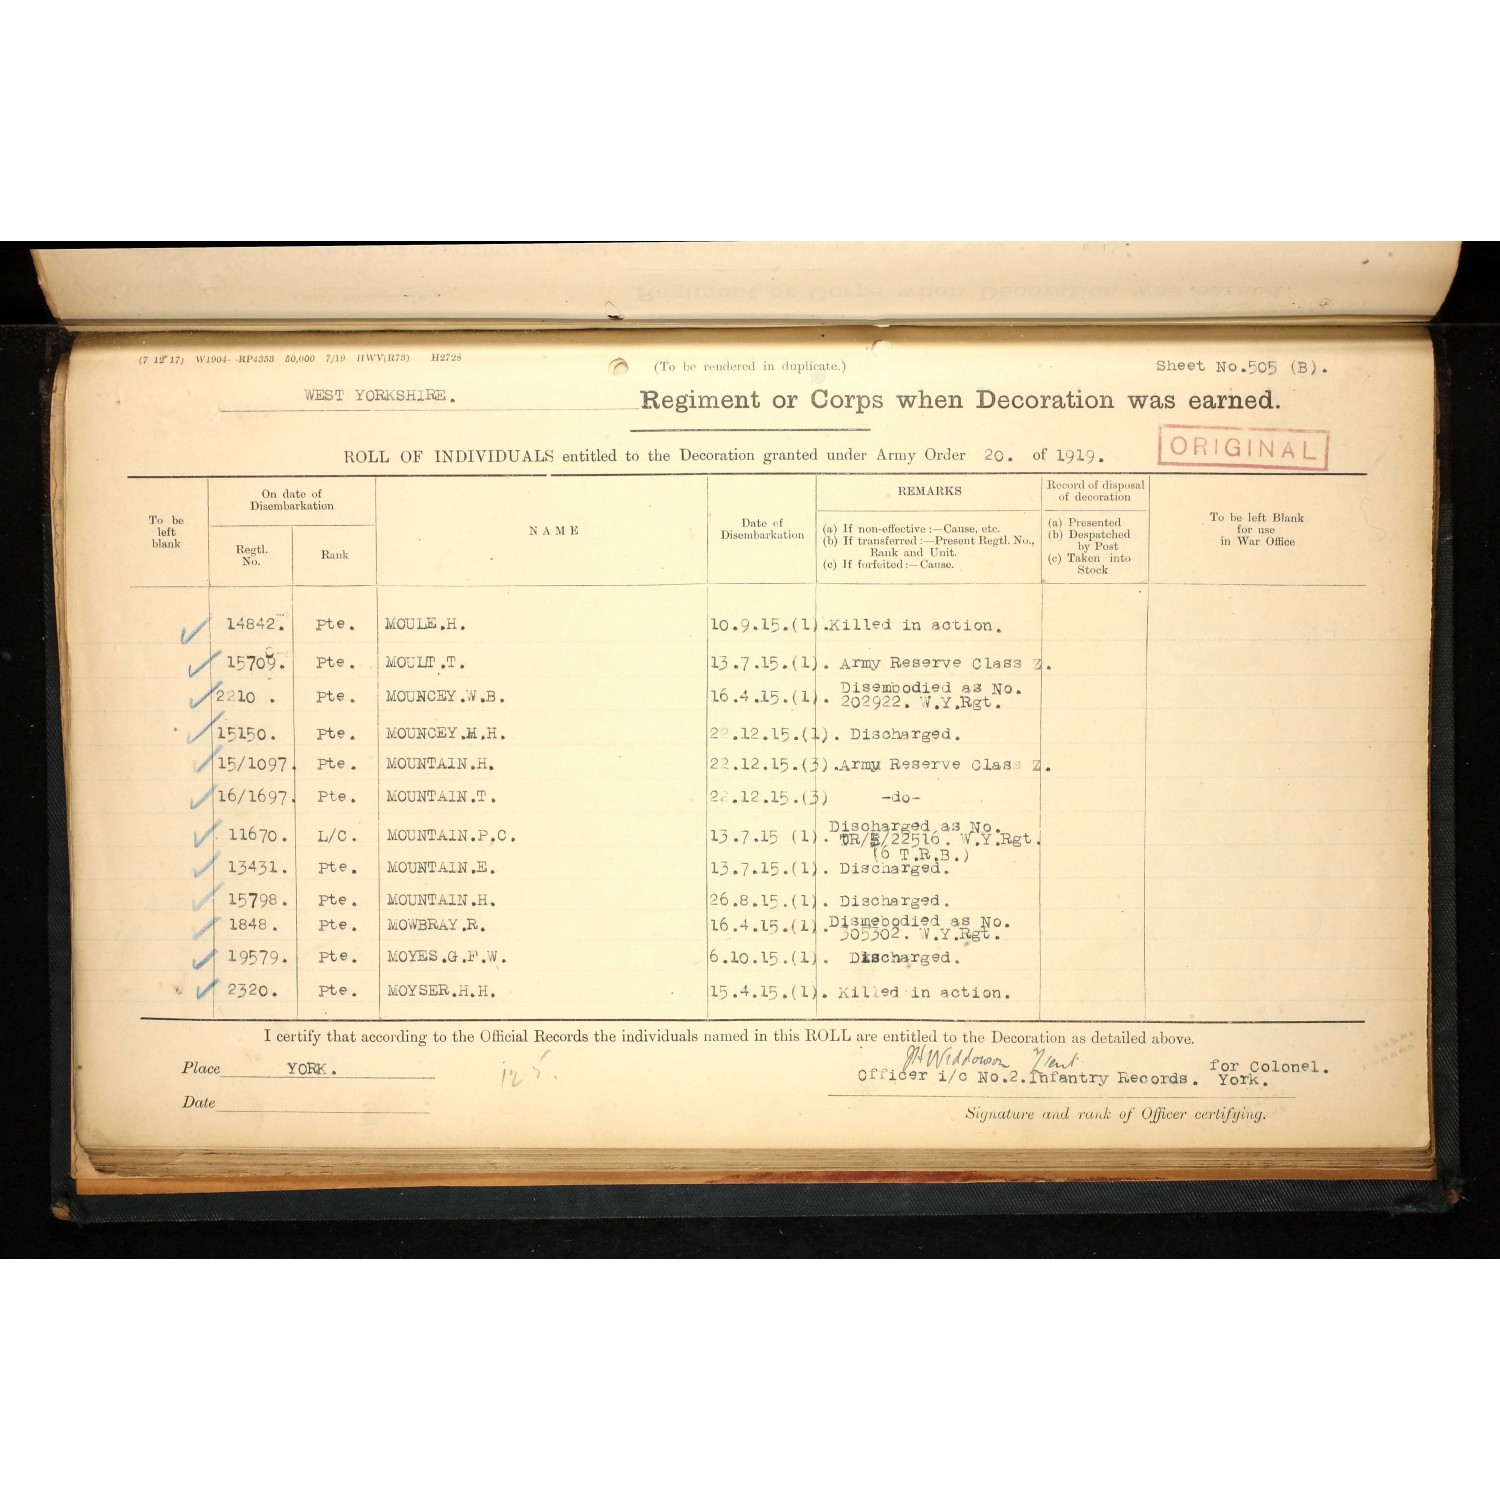 (7 12 17) W1904- -RP4353 50,000 7/19 HWV(R73) H2728
(To be rendered in duplicate.)
Sheet No.505 (B).
WEST YORKSHIRE.
Regiment or Corps when Decoration was earned.
ROLL OF INDIVIDUALS entitled to the Decoration granted under Army Order 20. of 1919.
ORIGINAL
To be left blank
On date of Disembarkation
Regtl. No.
Rank
NAME
Date of Disembarkation
REMARKS
(a) If non-effective :—Cause, etc.
(b) If transferred :—Present Regtl. No., Rank and Unit.
(c) If forfeited :— Cause.
Record of disposal of decoration
(a) Presented
(b) Despatched by Post
(c) Taken into Stock
To be left Blank for use in War Office
14842. Pte. MOULE.H. 10.9.15.(1). Killed in action.
15709. Pte. MOULT.T. 13.7.15.(1). Army Reserve Class Z.
2210 . Pte. MOUNCEY.W.B. 16.4.15.(1). Disembodied as No. 202922. W.Y.Rgt.
15150. Pte. MOUNCEY.M.H. 22.12.15.(1). Discharged.
15/1097. Pte. MOUNTAIN.H. 22.12.15.(3). Army Reserve Class Z.
16/1697. Pte. MOUNTAIN.T. 22.12.15.(3) -do-
11670. L/C. MOUNTAIN.P.C. 13.7.15 (1). Discharged as No. TR/5/22516. W.Y.Rgt. (6 T.R.B.)
13431. Pte. MOUNTAIN.E. 13.7.15.(1). Discharged.
15798. Pte. MOUNTAIN.H. 26.8.15.(1). Discharged.
1848. Pte. MOWBRAY.R. 16.4.15.(1). Dismebodied as No. 305302. W.Y.Rgt.
19579. Pte. MOYES.G.F.W. 6.10.15.(1). Discharged.
2320. Pte. MOYSER.H.H. 15.4.15.(1). Killed in action.
I certify that according to the Official Records the individuals named in this ROLL are entitled to the Decoration as detailed above.
Place YORK.
125.
JH Widdowson Lieut
for Colonel.
Officer i/c No.2.Infantry Records. York.
Date
Signature and rank of Officer certifying.